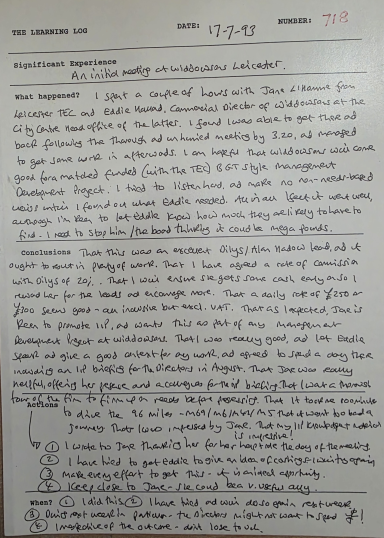 THE LEARNING LOG DATE: 17-7-93 NUMBER: 718
Significant Experience
An initial meeting at Widdowsons Leicester.
What happened? I spent a couple of hours with Jane from
Leicester TEC and Eddie Commercial Director of Widdowsons at the
City Centre Head office of the latter. I found I was able to get there and
back following the thorough and unhurried meeting by 3.20, and managed
to get some work in afterwards. I am hopeful that Widdowsons will come
good for a matched funded (with the TEC) BGT style management
Development Project. I tried to listen hard, and make no non-needs-based
until I found out what Eddie needed. All in all I felt it went well,
although I'm keen to let Eddie know how much they are likely to have to
find. I need to stop him/the board thinking it could be mega funds.
Conclusions That this was an excellent Dilys/Alan lead, and it
ought to result in plenty of work. That I have agreed a rate of commission
with Dilys of 20%. That I will ensure she gets some cash early and so I
reward her for the leads and encourage more. That a daily rate of £250 or
£300 seems good - an inclusive but excl. VAT. That as I expected, Jane is
keen to promote IIP, and wants this as part of any management
Development Project at Widdowsons. That I was really good, and let Eddie
speak and give a good context for my work, and agreed to spend a day there
including an IIP briefing for the Directors in August. That Jane was really
helpful, offering her and a colleague for the IIP briefing that I want a
tour of the firm to firm up on needs before That it took me
to drive the 96 miles - M69/M6/M42/M5 that it wasn't too bad a
journey. That I was impressed by Jane. That my IIP knowledge
is impressive!
Actions
① I wrote to Jane thanking her for her help the day of the meeting.
② I have tried to get Eddie to give an idea of costings - I will try again
③ Make every effort to get this - it is an ideal opportunity.
④ Keep close to Jane - she could be a v. useful ally.
When? ① I did this ② I have tried and will do so again next week
③ next week in particular - the Directors might not want to spend £!
④ Irrespective of the outcome - don't lose touch.